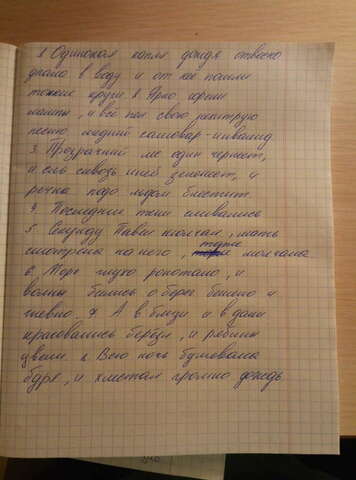 1 Одинокая капля дождя отвесно
упала в воду и от нее пошли
тонкие круги 2. Ярко горели
лампы, и все пел свою нехитрую
песню медный самовар-инвалид
3. Прозрачный лес один чернеет,
и ель сквозь иней зеленеет, и
речка подо льдом блестит.
4. Последние тени сливались
5. Секунду Павел молчал, мать
смотрела на него, тоже молчала
6. Море глухо роптало, и
волны бились о берег бешено и
гневно. 7. А в близи и в дали
красовались береза, и рябины
цвели 8. Всю ночь бушевала
буря, и хлестал громко дождь.